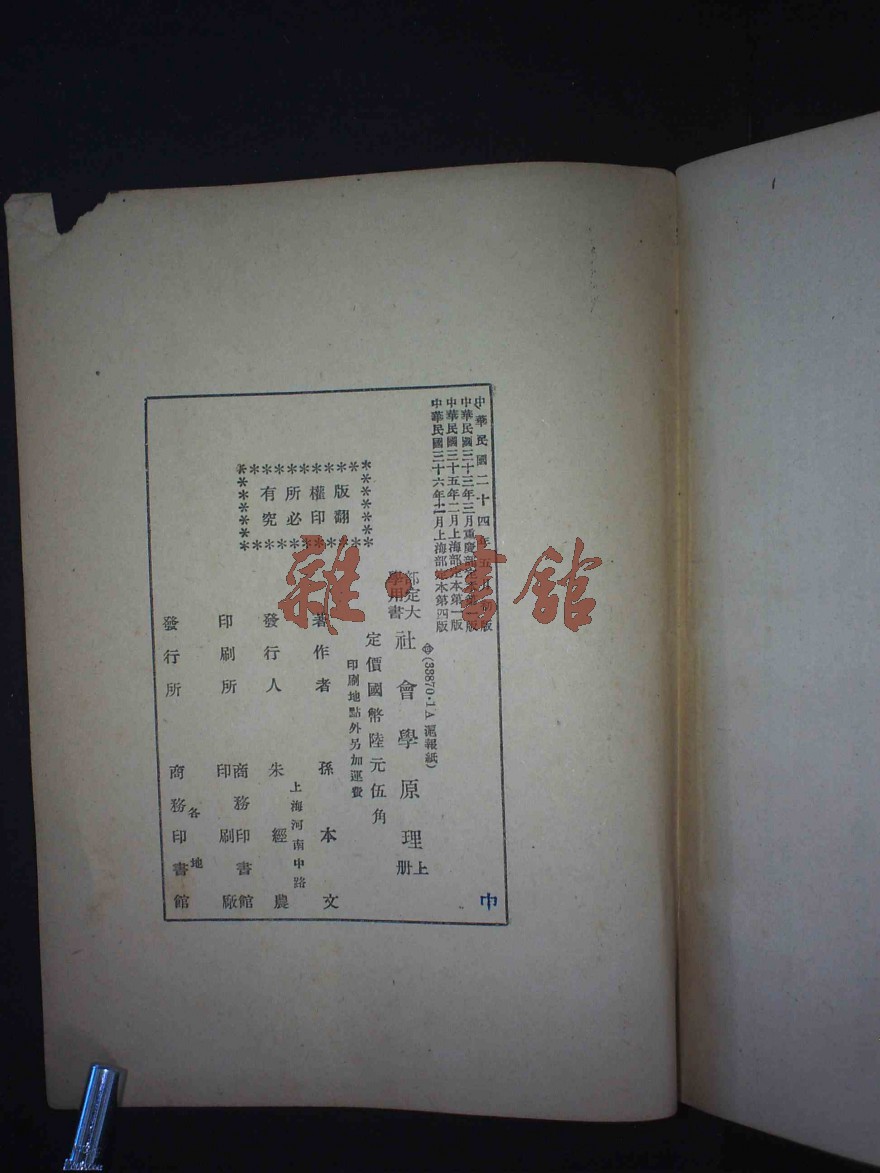 中華民國二十四年五月初版
中華民國三十三年三月重慶部定本第一版
中華民國三十五年二月上海部定本第一版
中華民國三十六年十二月上海部定本第四版
(33870·1A滬報紙)
部定大學用書
社會學原理 上册
定價國幣陸元伍角
印刷地點外另加運費
著作者 孫本文
上海河南中路
發行人 朱經農
印刷所 商務印書館印刷廠
各地
發行所 商務印書館
版權所有
翻印必究
中
雜·書館